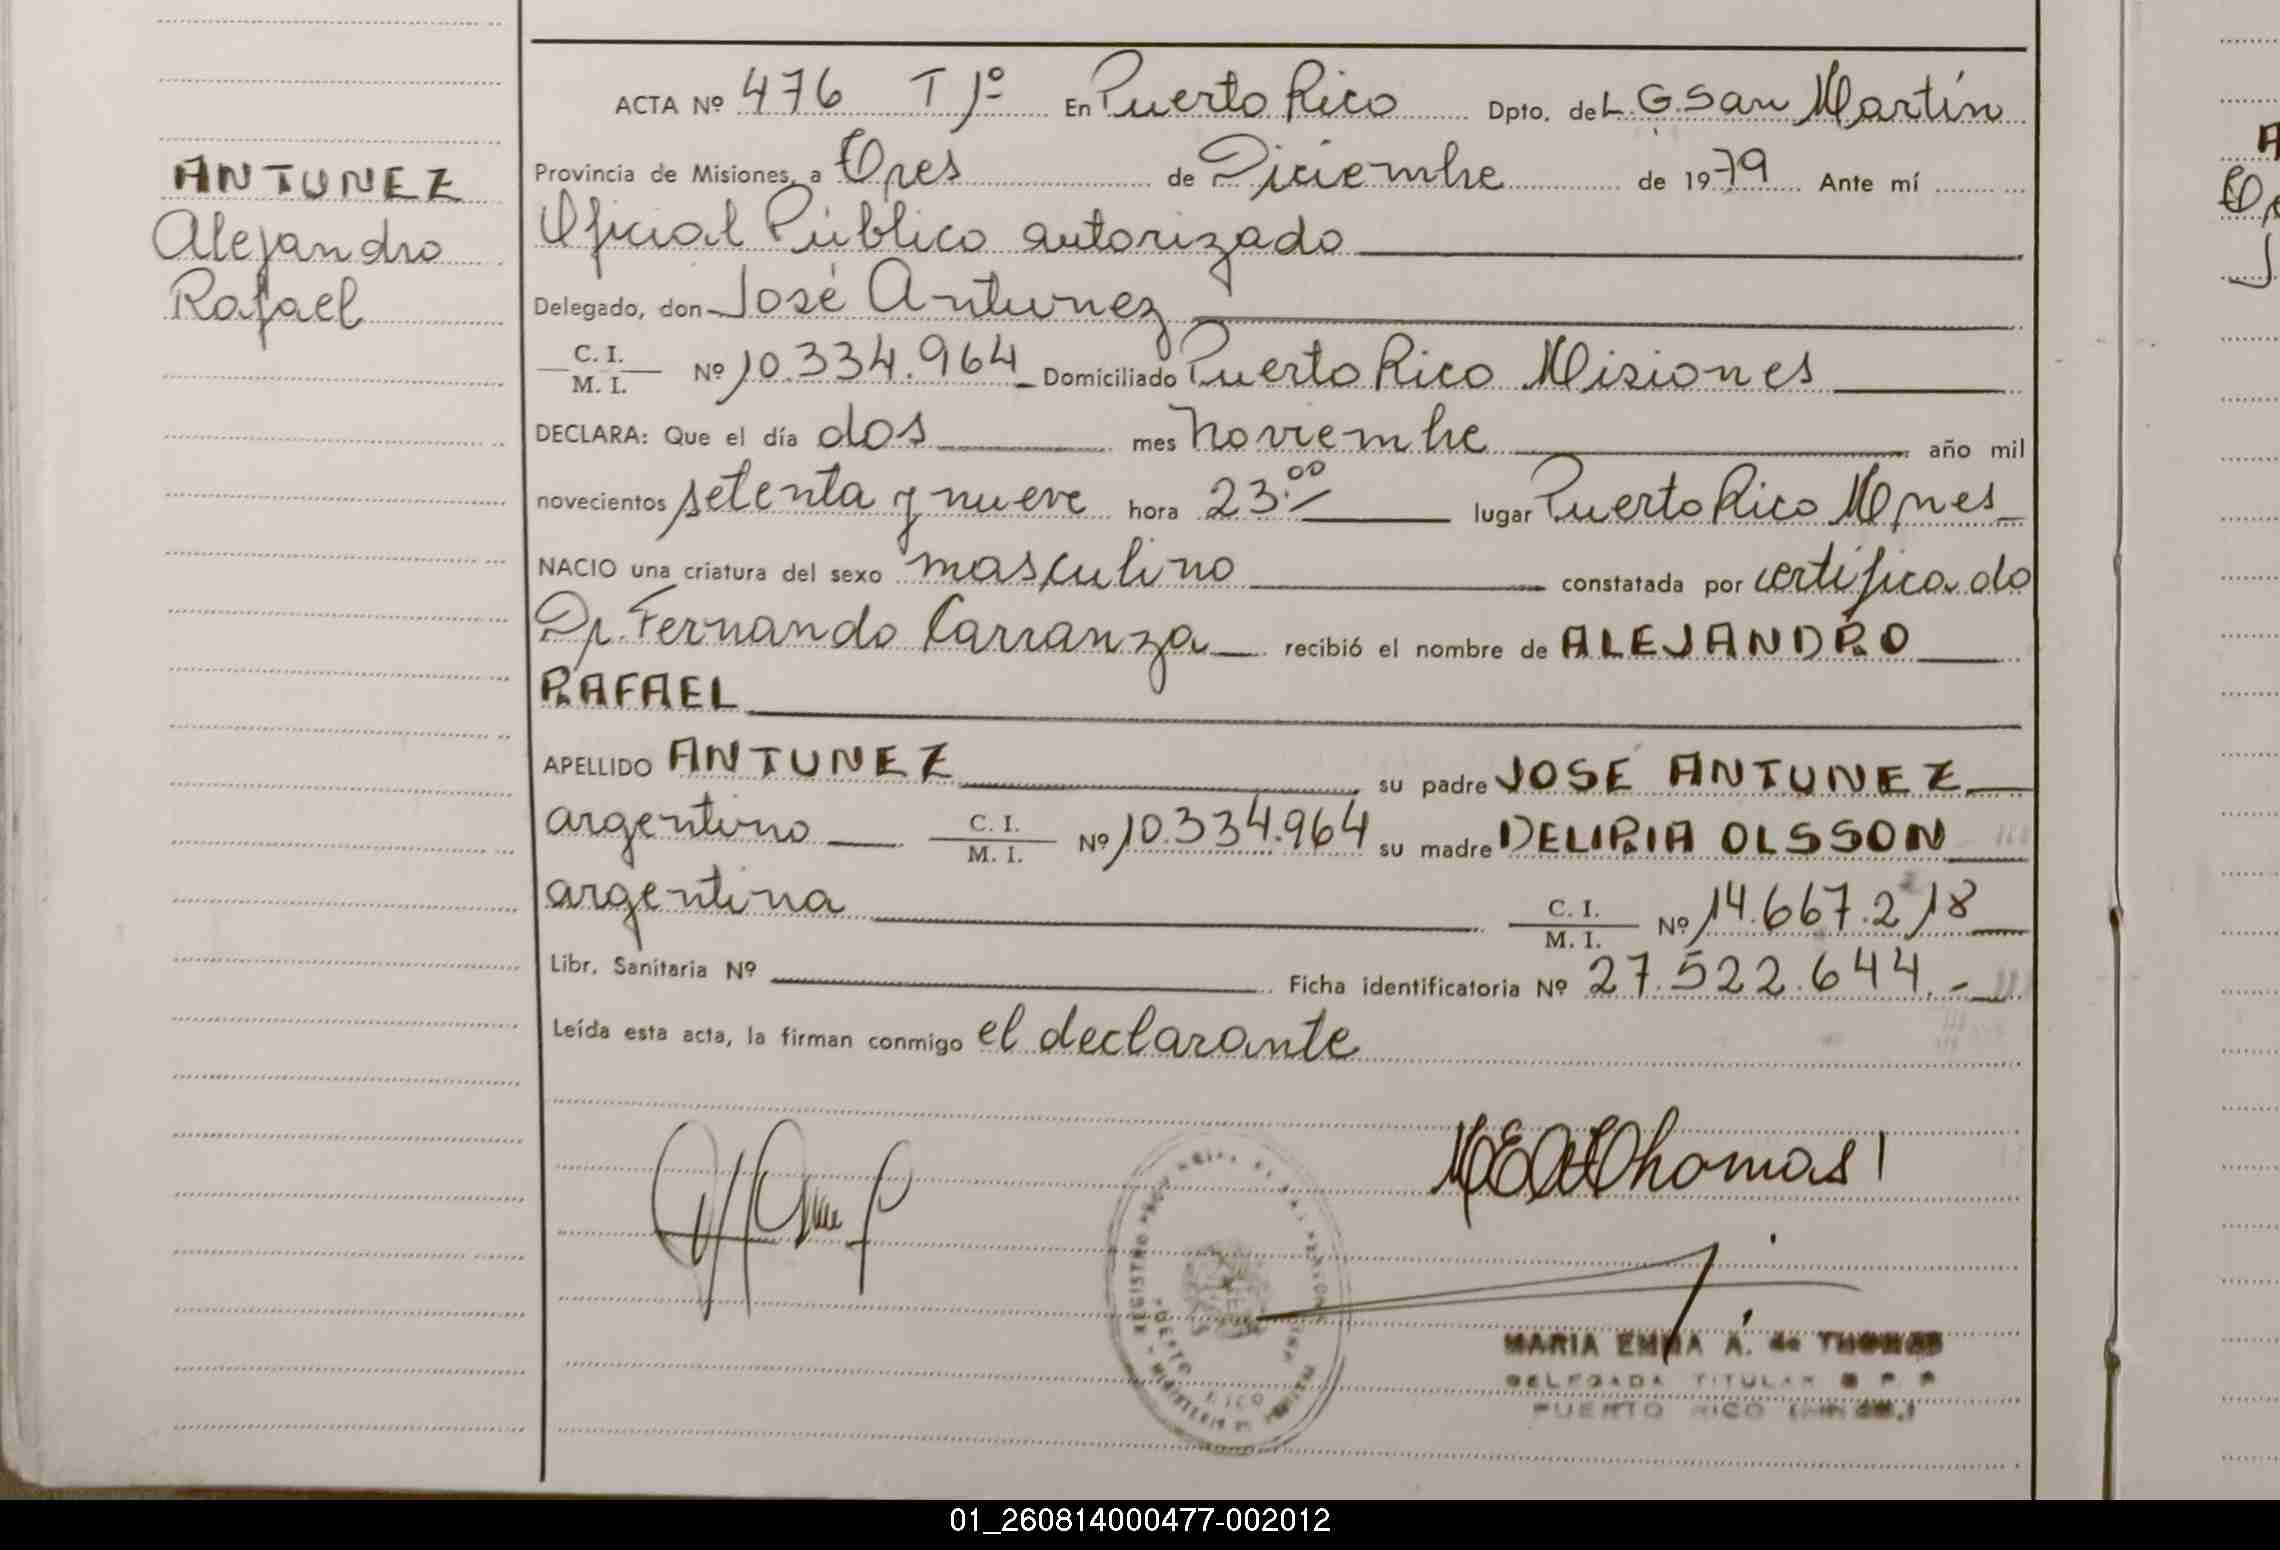 ACTA Nº 476 T 1º En Puerto Rico Dpto. de L. G. San Martín
ANTUNEZ
Alejandro
Rafael
Provincia de Misiones, a Tres de Diciembre de 1979 Ante mí
Oficial Público autorizado
Delegado, don José Antunez
C. I.
M. I. Nº 10.334.964 Domiciliado Puerto Rico Misiones
DECLARA: Que el día dos mes noviembre año mil
novecientos setenta y nueve hora 23.00 lugar Puerto Rico Mnes
NACIO una criatura del sexo masculino constatada por certificado
Dr. Fernando Carranza recibió el nombre de ALEJANDRO
RAFAEL
APELLIDO ANTUNEZ su padre JOSÉ ANTUNEZ
argentino C. I.
M. I. Nº 10.334.964 su madre DELIRIA OLSSON
argentina C. I.
M. I. Nº 14.667.218
Libr. Sanitaria Nº Ficha identificatoria Nº 27.522.644.-
Leída esta acta, la firman conmigo el declarante
MEA de Thomas
MARIA EMMA A. de THOMAS
DELEGADA TITULAR
PUERTO RICO
01_260814000477-002012